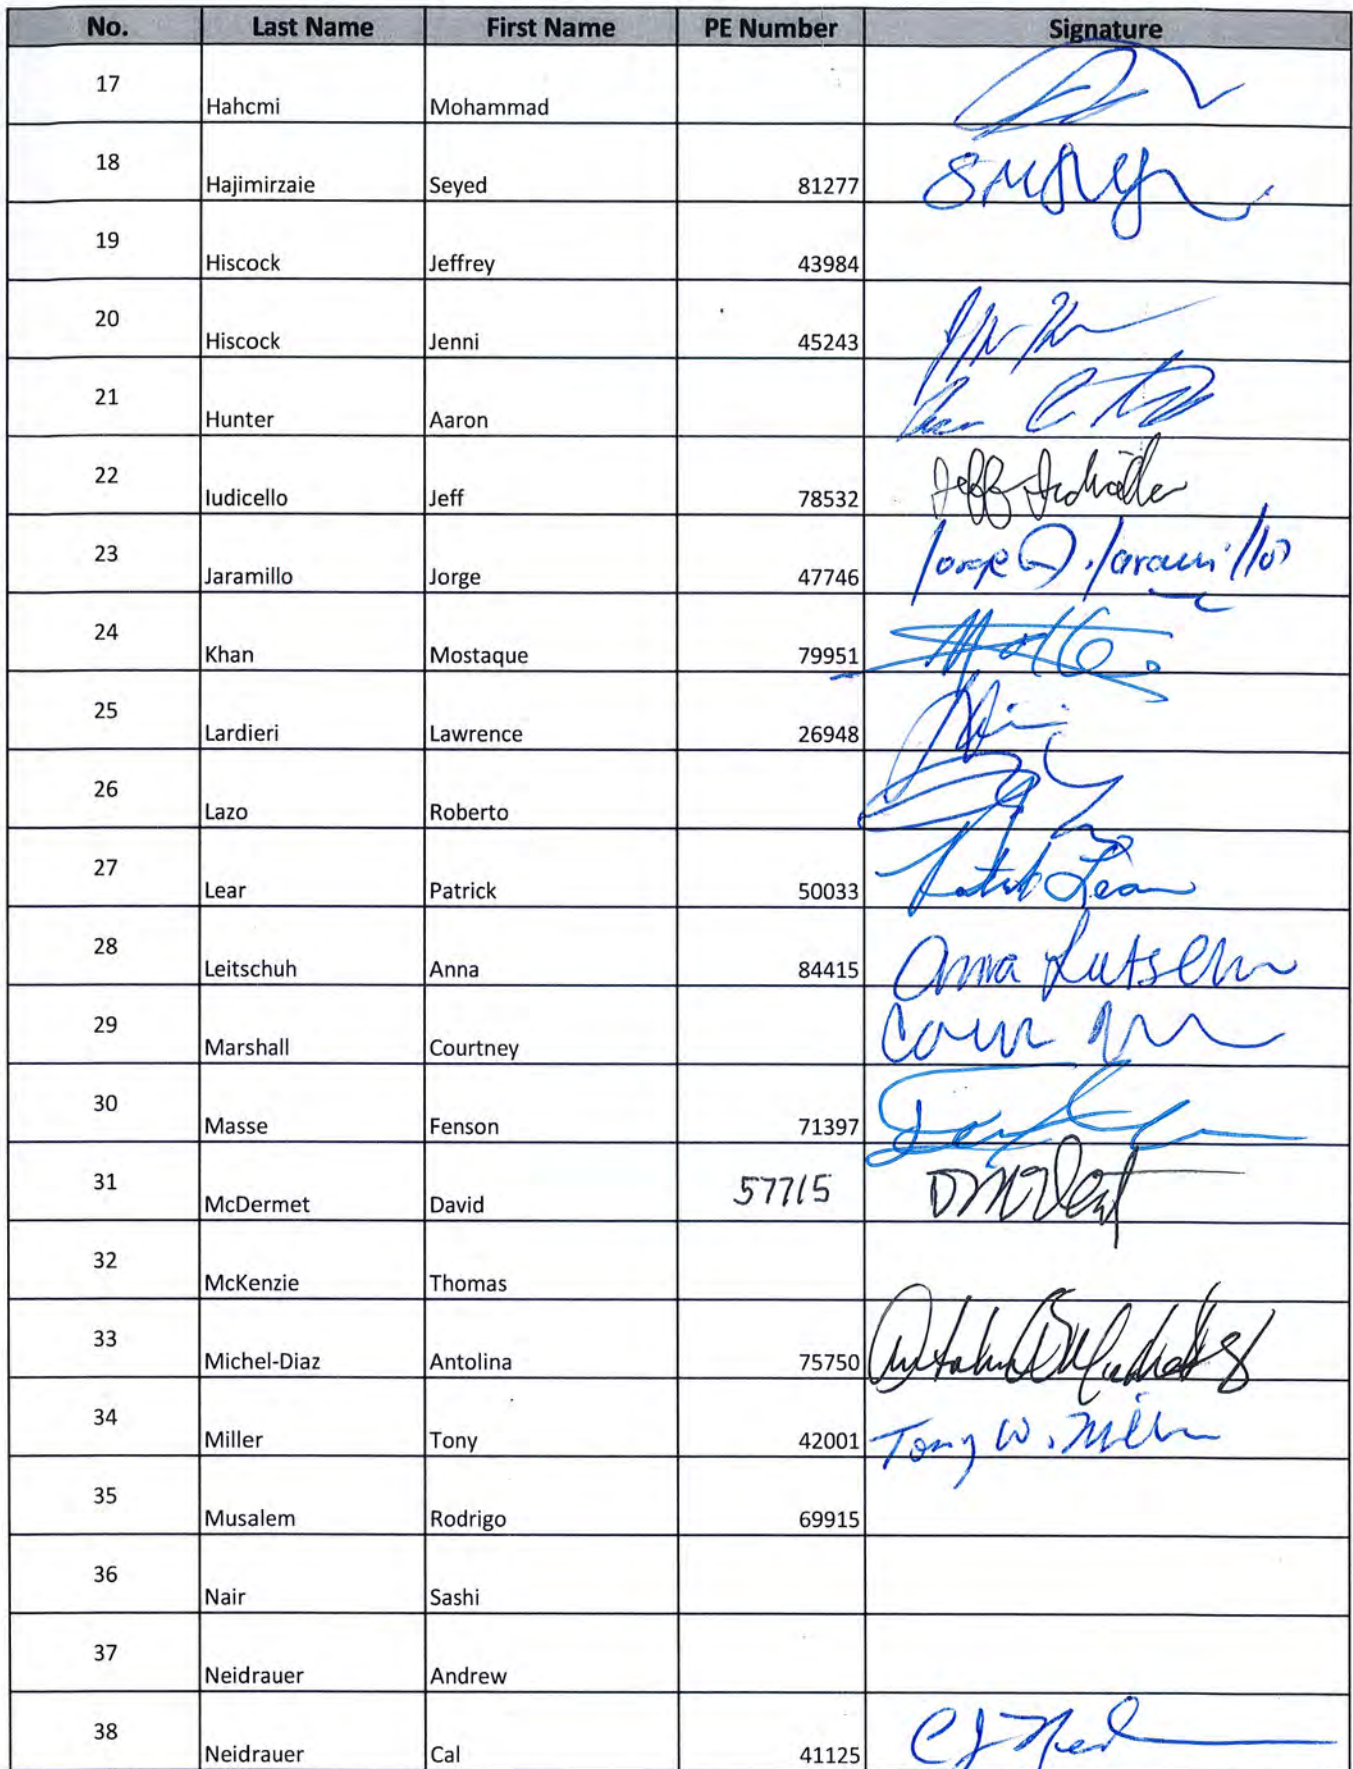 No. Last Name First Name PE Number Signature
17 Hahcmi Mohammad
18 Hajimirzaie Seyed 81277
19 Hiscock Jeffrey 43984
20 Hiscock Jenni 45243
21 Hunter Aaron
22 Iudicello Jeff 78532 Jeff
23 Jaramillo Jorge 47746 Jorge Jaramillo
24 Khan Mostaque 79951
25 Lardieri Lawrence 26948
26 Lazo Roberto
27 Lear Patrick 50033 Patrick Lear
28 Leitschuh Anna 84415 Anna
29 Marshall Courtney
30 Masse Fenson 71397
31 McDermet David 57715
32 McKenzie Thomas
33 Michel-Diaz Antolina 75750
34 Miller Tony 42001 Tony W. Miller
35 Musalem Rodrigo 69915
36 Nair Sashi
37 Neidrauer Andrew
38 Neidrauer Cal 41125